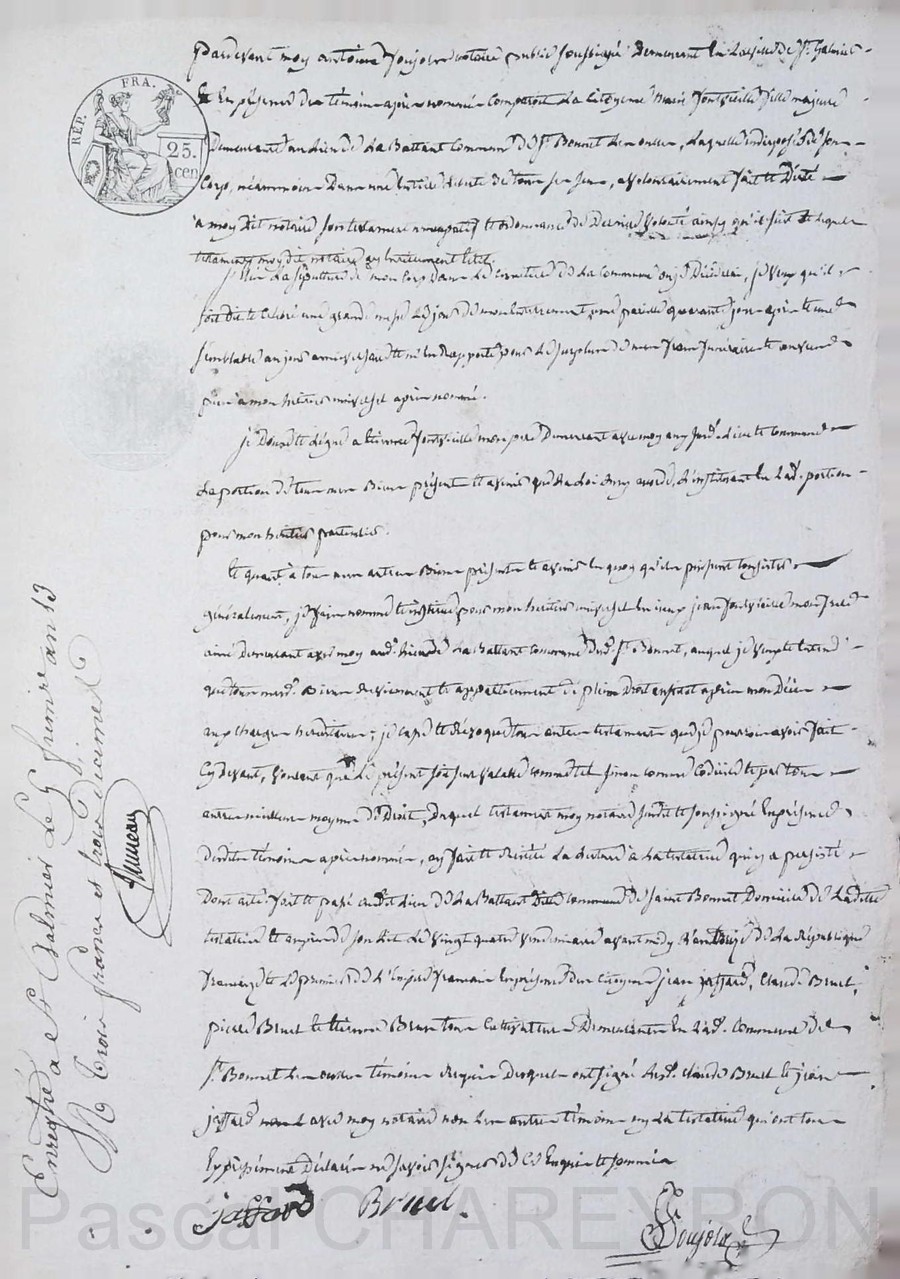 RÉP. FRA.
25.
cen
Pardevant moy antoine Soujols notaire public soussigné Demeurant en la ville de St. Galmier
& En presence des témoins apres nommés Comparoit La Citoyenne Marie fille majeure
Demeurant au lieu de La Battant Commune de St. Bonnet Les oulles, Laquelle indisposée de son
Corps, néammoins Dans une Entiere liberté de tous ses sens, a volontairement fait & Dicté
a moy dit notaire son testament nuncupatif & ordonnance de Derniere volonté ainsy qu'il suit & lequel
testament moy dit notaire ay Entierement Ecrit.
La sépulture de mon Corps dans Le Cimetiere de La Commune ou je Décéderai, je veux qu'il
soit dit & Célébré une grande messe Le jour de mon Enterrement, une pareille quarante jours apres & une
semblable au jour anniversaire & m'En Rapporte pour Le surplus de mes frais funéraires & œuvres
pies a mon héritier universel apres nommé.
je Donne & Légue a Etienne mon pere Demeurant avec moy auxd. Lieu & Commune
La portion de tous mes Biens présents & avenir que La Loi luy accorde, L'instituant En Lad. portion
pour mon héritier particulier.
Et quant à tous mes autres Biens présents & avenir En quoy qu'ils puissent Consister
généralement, je fais nomme & institue pour mon héritier universel jean mon frere
ainé Demeurant avec moy aud. lieu de La Battant Commune dud. St. Bonnet, auquel je veux & Entend
que tous mesd. Biens Reviennent & appartiennent de plein Droit aussitot apres mon Décès
aux Charges héréditaires; je Casse & Révoque tous autres testaments que je pourrois avoir fait
Cy devant, voulant que Le présent soit seul valable comme tel sinon comme Codicile & par tous
autres meilleurs moyens de Droit, Duquel testament moy notaire susdit & soussigné En présence
Desdits témoins apres nommés, ay fait & Réiteré La Lecture à La testatrice qui y a persisté
Dont acte, fait & passé audit Lieu de La Battant Ditte commune de Saint Bonnet Domicile de Laditte
testatrice & aupres de son Lit Le vingt quatre vendemiaire avant midy L'an treize de La République
française & Le premier de L'Empire français En présence des Citoyens jean jaffard, Claude Brunel,
pierre Brunel & Etienne Brun tous Cultivateurs Demeurants En Lad. Commune de
St. Bonnet Les oulles témoins Requis Desquels ont signé Lesd. Claude Brunel & jean
jaffard avec moy notaire non Les autres témoins ny La testatrice qui ont tous
Expressément Déclaré ne savoir signer de Ce Enquis & sommés
jaffard Brunel
Soujols
Enregtré a St Galmier Le 9 frimaire an 13
R trois francs et trois Decimes
Pascal CHAREYRON